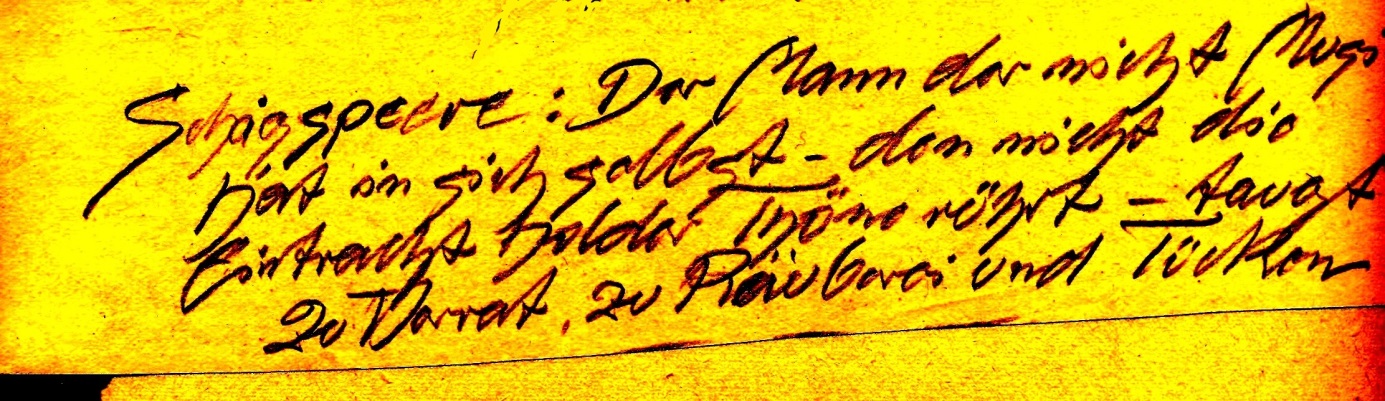 Schigspeere: Der Mann der nicht Musi
hat in sich selbst – den nicht die
Eintracht holder Thöne rührt – taugt
zu Verrat, zu Räuberei und Tücken